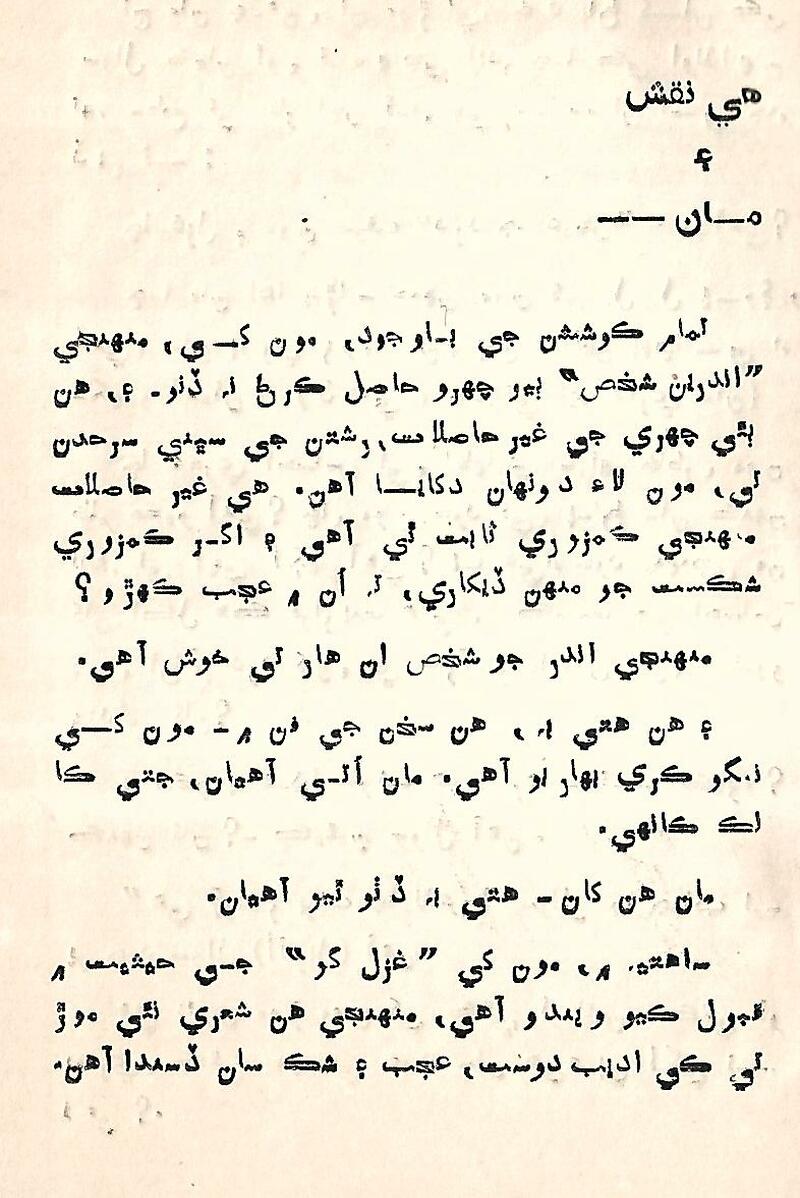 هي نقش
۽
مــان ـــ ـــ
تمام ڪوشش جي بـاوجود، مون کــي، منهنجي
”اندرين شخص“ ٻيو چهرو حاصل ڪرڻ نہ ڏنو۔ ۽، هن
ٻئي چهري جي غير حاصلات، رشتن جي سڀني سرحدن
تي، مون لاءِ دونهان دکايــا آهن. هي غير حاصلات
منهنجي ڪمزوري ثابت ٿي آهي ۽ اگـر ڪمزوري
شڪست جو منهن ڏيکاري، تہ اُن ۾ عجب ڪهڙو؟
منهنجي اندر جو شخص ان هار تي خوش آهي.
۽ هن هتي بہ، هن سخن جي فن ۾ ـ مون کــي
ننگو ڪري بيهاريو آهي. مان اُتـي آهيان، جتي ڪا
لڪ ڪانهي.
مان هن کان ـ هتي بہ ڏٺو ٿيو آهيان.
ساهتيہ ۾، مون کي ”غزل گو“ جـي حيثيت ۾
قبول ڪيو ويندو آهي، منهنجي هن شعري نئي موڙ
تي ڪي اديب دوست، عجب ۽ شڪ سان ڏسندا آهن.